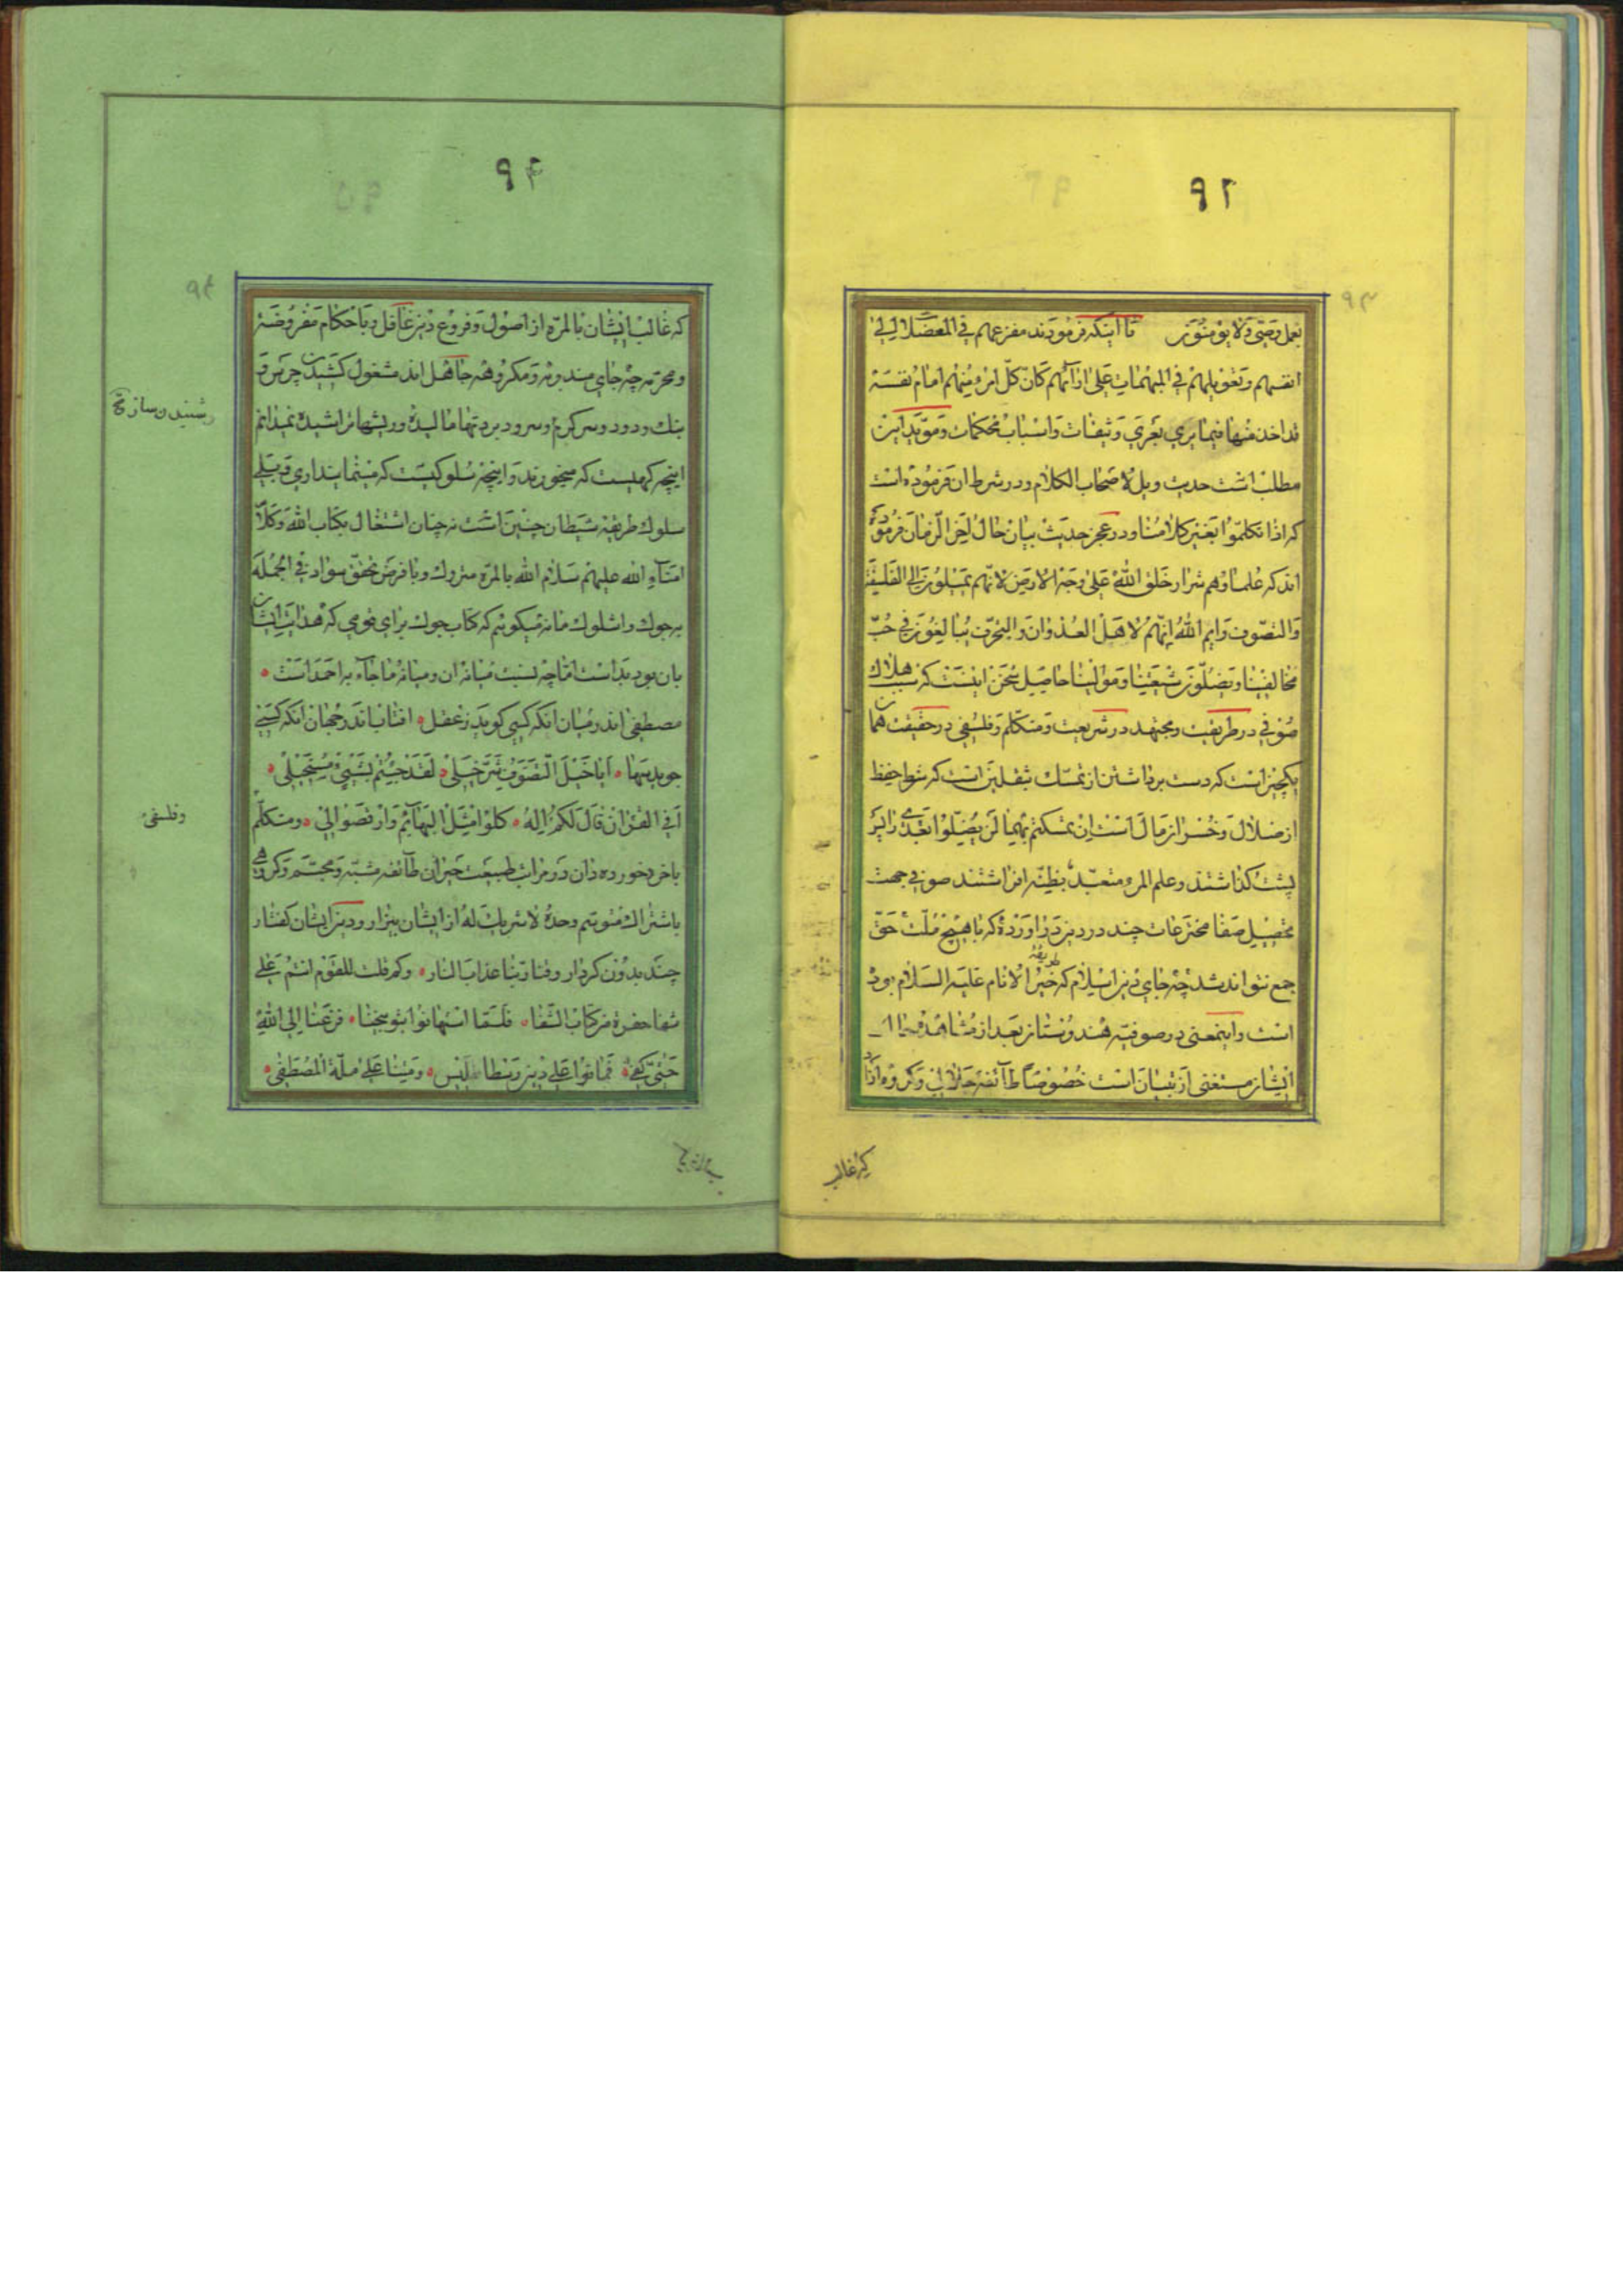 ۹۳
بعمل وصی ولا یؤمنون تا اینکه فرمودند مفزعهم فی المعضلات الی
انفسهم وتعویلهم فی المبهمات علی ارآئهم کان کل امرء منهم امام نفسه
قد اخذ منها فیما یری بعری وثیقات واسباب محکمات ومؤید این
مطلب است حدیث ویل لاصحاب الکلام ودر شرط ان فرموده است
که اذا تکلموا بغیر کلامنا ودر عجز حدیث بیان حال اخر الزمان فرموده
اند که علماؤهم شرار خلق الله علی وجه الارض لانهم یمیلون الی الفلسفة
والتصوف وایم الله انهم لاهل العدوان والتحرف یبالغون فی حب
مخالفینا ویضلون شیعتنا وموالینا حاصل سخن اینست که سبب هلاک
صوفی در طریقت ومجتهد در شریعت ومتکلم وفلسفی در حقیقت همان
یکچیز است که دست برداشتن از تمسک بثقلین است که شرط حفظ
از ضلال وخسران مال است ان تمسکتم بهما لن یضلوا بعدی را بر
پشت کذاشتند وعلم المرء متعبد بظنه افراشتند صوفی جهت
تحصیل صفا مخترعات چند در دین در اورده که با هیچ ملت حق
جمع نتواند شد چه جای دین اسلام که طریقه خیر الانام علیه السلام بود
است واینمعنی در صوفیه هندوستان بعد از مشاهده
ایشان مستغنی از تبیان است خصوصا طآئفه جلالی وکروه ازاد
که غالب
۹۴
۹۴
که غالب ایشان بالمره از اصول وفروع دین غافل وباحکام مفروضه
ومحرمه چه جای مندوبه ومکروهه جاهل اند مشغول کشیدن چرس و
بنک ودود وسر کرم وسرود بر تنها مالیده وریشها تراشیده نمیدانم
اینچه کهیست که میخورند واینچه سلوکیست که مینمایند اری قربتلی
سلوک طریقه شیطان چنین است نه چنان اشتغال بکتاب الله وکلام
امنآء الله علیهم سلام الله بالمره متروک وبا فرض تحقق سواد فی الجمله
به جوک واشلوک ما نه میکوئیم که کتاب جوک برای قومی که هدایت ایشان
بان بود بد است اما چه نسبت میانه ان ومیانه ما جآء به احمد است
مصطفی اندر میان انکه کسی کوید ز عقل افتاب اندر جهان انکه کسی
جوید سها ایا خیل التصوف شر خیل لقد جئتم بشیء مستحیل
أفی القران قال لکم اله کلوا مثل البهآئم وارقصوا لی ومتکلم
وشنیدن ساز صح
وفلسفی
باخر خورده دان در مراتب طبیعت حیران طآئفه مشبه ومجسم وکروهی
باشتراک متوسم وحده لا شریک له از ایشان بیزار ودین ایشان کفتار
چند بدون کردار وقنا ربنا عذاب النار وکم قلت للقوم انتم علی
شفا حفرة من کتاب الشفا فلما استهانوا بتوبیخنا فرغنا الی الله
حتی کفی فماتوا علی دین رسطالیس ومتنا علی ملة المصطفی